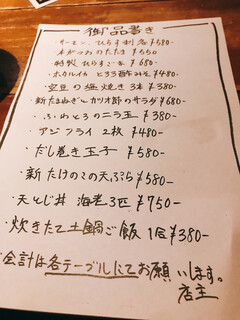 御品書き
・サーモン、ひらす刺身 ¥580-
・本がつおのたたき ¥550
・特製 ひらすごま ¥680-
・ホタルイカ とろろ酢みそ ¥480-
・空豆の塩焼き 3本 ¥380-
・新たまねぎとカリオ節のサラダ ¥680-
・ふわとろのニラ玉 ¥380-
・アジフライ 2枚 ¥480-
・だし巻き玉子 ¥580-
・新たけのこの天ぷら ¥580-
・天とじ丼 海老3匹 ¥750-
・炊きたて土鍋ご飯 1合 ¥380-
・会計は各テーブルにてお願いします。
店主